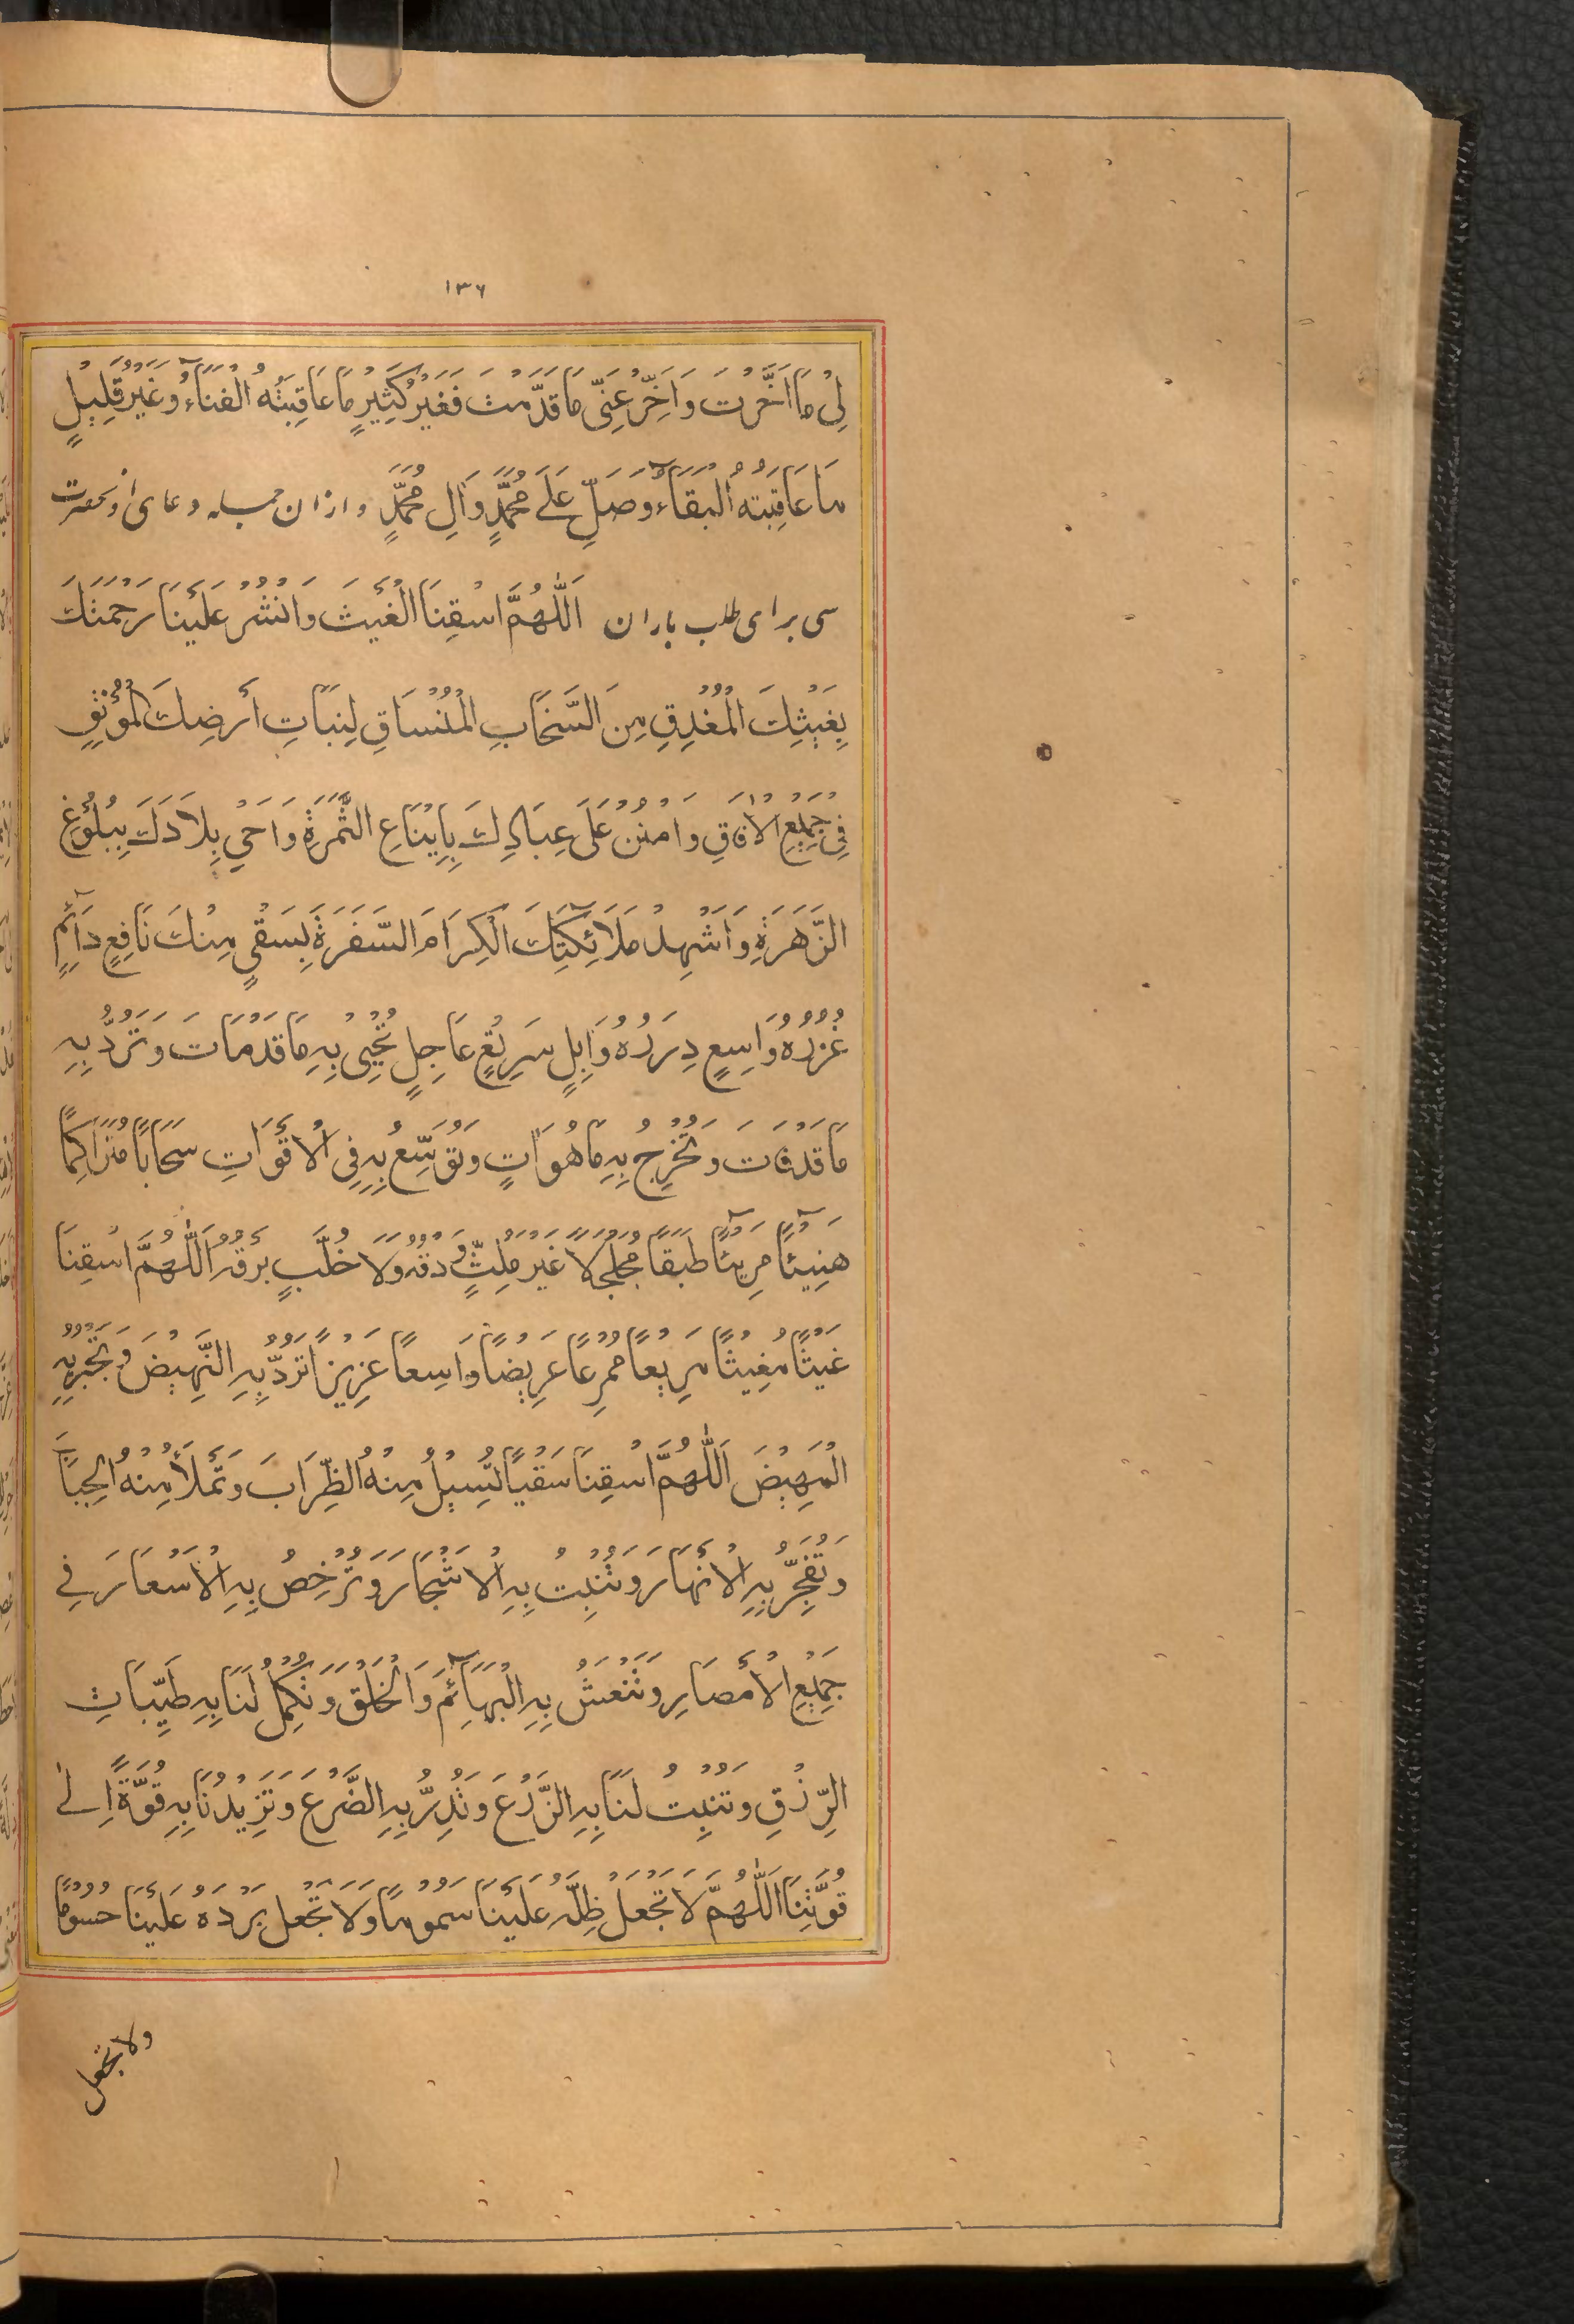 ١٣٦
لِيْ مَا اَخَّرْتَ وَاَخِّرْ عَنِّي مَا قَدَّمْتَ فَغَيْرُ كَثِيْرٍ مَا عَاقِبَتُهُ الْفَنَآءُ وَغَيْرُ قَلِيْلٍ
مَا عَاقِبَتُهُ الْبَقَآءُ وَصَلِّ عَلَى مُحَمَّدٍ وَآلِ مُحَمَّدٍ و ازان جمله دعای آنحضرت
سی برای طلب باران اَللّٰهُمَّ اسْقِنَا الْغَيْثَ وَانْشُرْ عَلَيْنَا رَحْمَتَكَ
بِغَيْثِكَ الْمُغْدِقِ مِنَ السَّحَابِ الْمُنْسَاقِ لِنَبَاتِ أَرْضِكَ الْمُؤْنِقِ
فِيْ جَمِيْعِ الْاٰفَاقِ وَامْنُنْ عَلَى عِبَادِكَ بِاِيْنَاعِ الثَّمَرَةِ وَاَحْيِ بِلَادَكَ بِبُلُوْغِ
الزَّهَرَةِ وَاَشْهِدْ مَلَآئِكَتَكَ الْكِرَامَ السَّفَرَةَ بِسَقْيٍ مِنْكَ نَافِعٍ دَآئِمٍ
غُزْرُهُ وَاسِعٍ دِرَرُهُ وَابِلٍ سَرِيْعٍ عَاجِلٍ تُحْيِيْ بِهِ مَا قَدْ مَاتَ وَتَرُدُّ بِهِ
مَا قَدْ فَاتَ وَتُخْرِجُ بِهِ مَا هُوَ اٰتٍ وَتُوَسِّعُ بِهِ فِي الْاَقْوَاتِ سَحَابًا مُتَرَاكِمًا
هَنِيْٓئًا مَرِيْٓئًا طَبَقًا مُجَلْجَلًا غَيْرَ مُلِثٍّ وَدْقُهُ وَلَا خُلَّبٍ بَرْقُهُ اَللّٰهُمَّ اسْقِنَا
غَيْثًا مُغِيْثًا مَرِيْعًا مُمْرِعًا عَرِيْضًا وَاسِعًا عَزِيْزًا تَرُدُّ بِهِ النَّهِيْضَ وَتَجْبُرُ بِهِ
الْمَهِيْضَ اَللّٰهُمَّ اسْقِنَا سَقْيًا تُسِيْلُ مِنْهُ الظِّرَابَ وَتَمْلَأُ مِنْهُ الْجِبَابَ
وَتُفَجِّرُ بِهِ الْاَنْهَارَ وَتُنْبِتُ بِهِ الْاَشْجَارَ وَتُرْخِصُ بِهِ الْاَسْعَارَ فِي
جَمِيْعِ الْأَمْصَارِ وَتَنْعَشُ بِهِ الْبَهَآئِمَ وَالْخَلْقَ وَتُكْمِلُ لَنَا بِهِ طَيِّبَاتِ
الرِّزْقِ وَتُنْبِتُ لَنَا بِهِ الزَّرْعَ وَتُدِرُّ بِهِ الضَّرْعَ وَتَزِيْدُنَا بِهِ قُوَّةً اِلٰى
قُوَّتِنَا اَللّٰهُمَّ لَا تَجْعَلْ ظِلَّهُ عَلَيْنَا سَمُوْمًا وَلَا تَجْعَلْ بَرْدَهُ عَلَيْنَا حُسُوْمًا
ولا تجعل